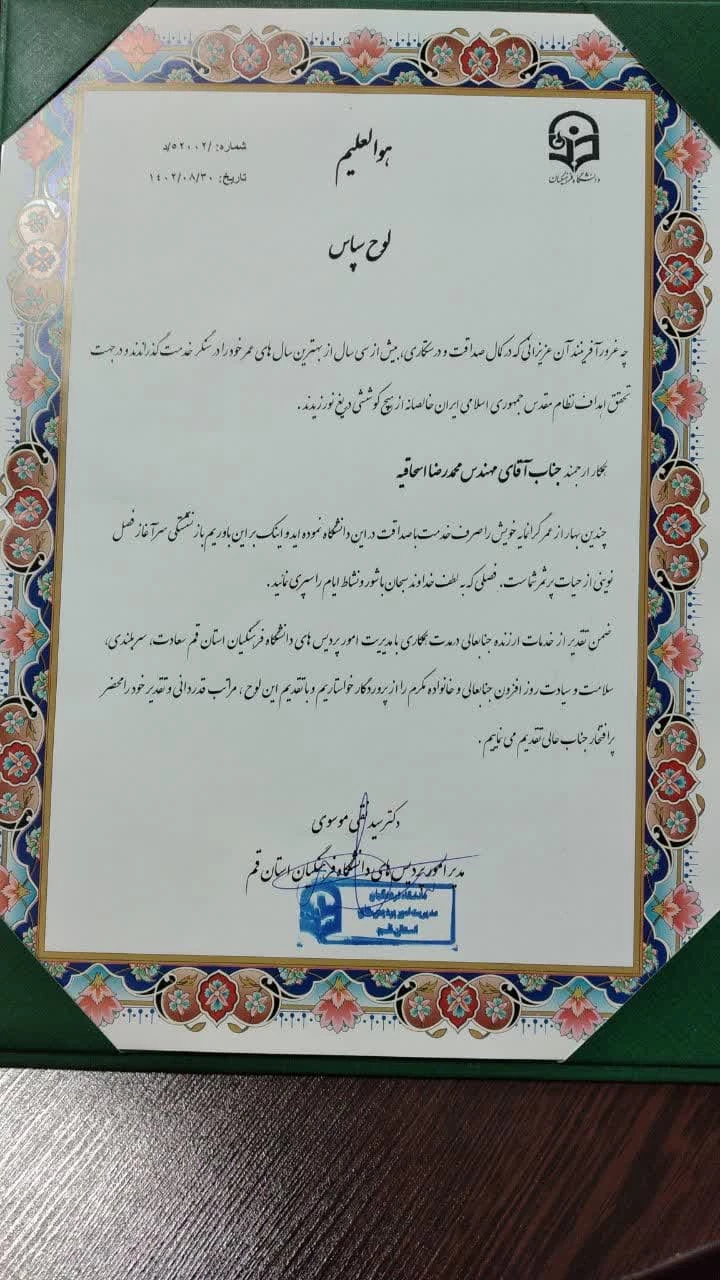 هوالعلیم
شماره: /۵۲۰۰۲/د
تاریخ: ۱۴۰۲/۰۸/۳۰
دانشگاه فرهنگیان
لوح سپاس
چه غرورآفرینند آن عزیزانی که در کمال صداقت و درستکاری، بیش از سی سال از بهترین سال های عمر خود را در سنگر خدمت گذراندند و در جهت
تحقق اهداف نظام مقدس جمهوری اسلامی ایران خالصانه از هیچ کوششی دریغ نورزیدند.
همکار ارجمند جناب آقای مهندس محمدرضا اسحاقیه
چندین بهار از عمر گرانمایه خویش را صرف خدمت با صداقت در این دانشگاه نموده اید و اینک بر این باوریم بازنشستگی سرآغاز فصل
نوینی از حیات پرثمر شماست. فصلی که به لطف خداوند سبحان با شور و نشاط ایام را سپری نمائید.
ضمن تقدیر از خدمات ارزنده جنابعالی در مدت همکاری با مدیریت امور پردیس های دانشگاه فرهنگیان استان قم سعادت، سربلندی،
سلامت و سیادت روز افزون جنابعالی و خانواده مکرم را از پروردگار خواستاریم و با تقدیم این لوح، مراتب قدردانی و تقدیر خود را محضر
پرافتخار جناب عالی تقدیم می نماییم.
دکتر سید نقی موسوی
مدیر امور پردیس های دانشگاه فرهنگیان استان قم
دانشگاه فرهنگیان
مدیریت امور پردیس های
استان قم